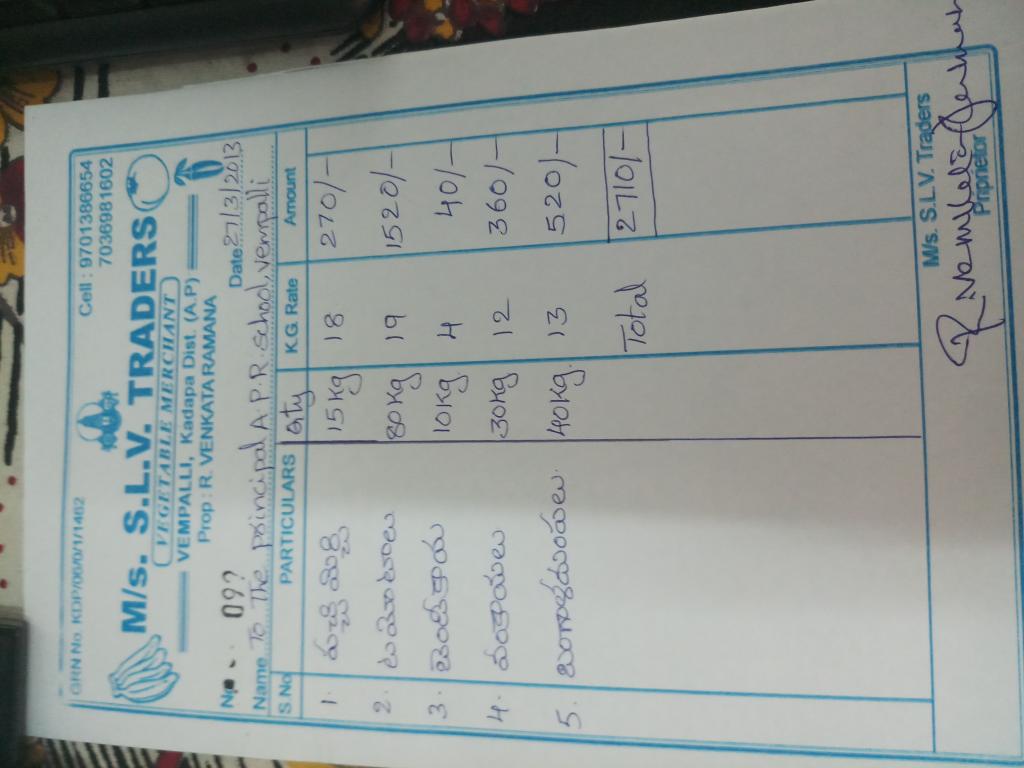 GRN No KDP/06/0/1/1462 Cell : 9701386654
7036981602
M/s. S.L.V. TRADERS
VEGETABLE MERCHANT
VEMPALLI, Kadapa Dist. (A.P)
Prop : R. VENKATA RAMANA
No. Date 27/3/2013
Name To The principal A.P.R. School, vempalli
S.No PARTICULARS Qty K.G. Rate Amount
1. పచ్చి మిర్చి 15kg 18 270/-
2. టమోటాలు 80kg 19 1520/-
3. 10kg 4 40/-
4. వంకాయలు 30kg 12 360/-
5. బంగాళదుంపలు. 40kg. 13 520/-
Total 2710/-
M/s. S.L.V. Traders
Priprietor